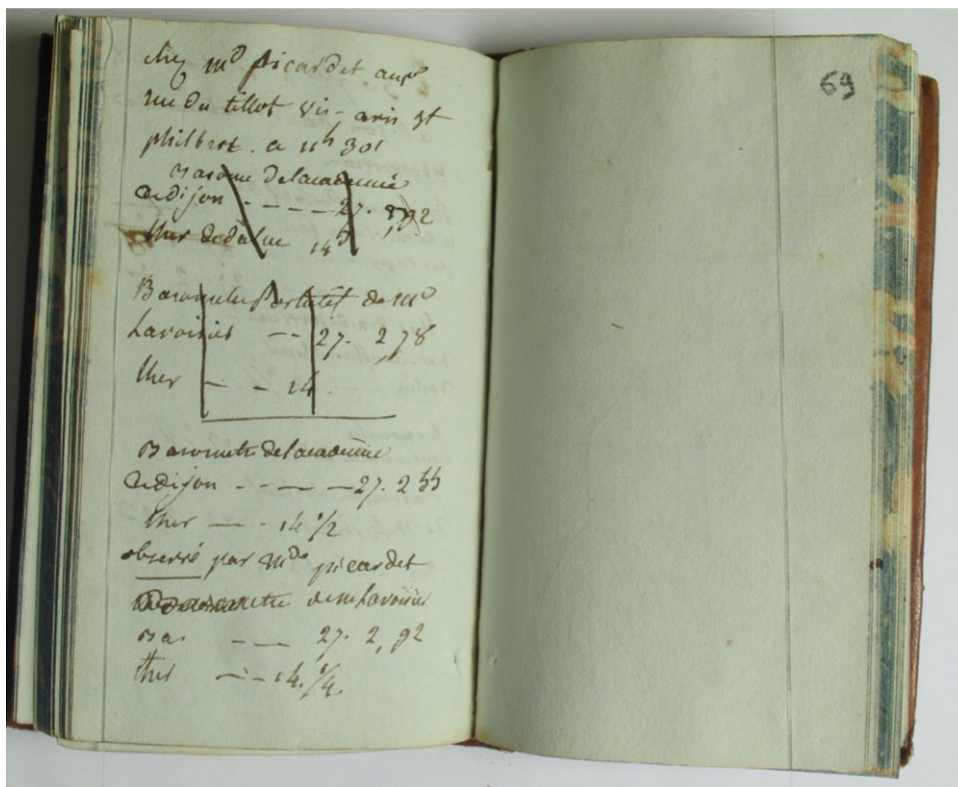 chez mde picardet auxe
rue du tillot vis-avis st
philbert. a 11h 30'
Barome delacademie
de dijon - - - - 27.
ther 14
Barometre Portatif de mr
Lavoisier - - 27. 2,78
ther - - 14.
Barometre delacademie
de dijon - - - - 27. 2
ther - - 14 1/2
observé par mde picardet
de mr Lavoisier
Bar - - 27. 2,92
ther - - 14. 1/4.
69